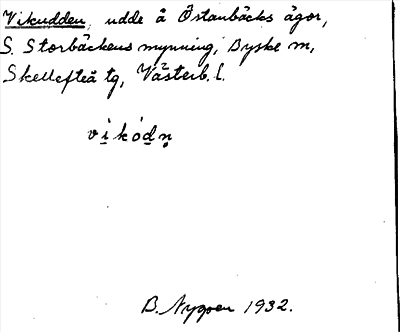 Vikudden, udde å Östanbäcks ägor,
S. Storbäckens mynning, Byske m,
Skellefteå tg, Västerb. l.
vi̱kód̠n̥
B. Nygren 1932.